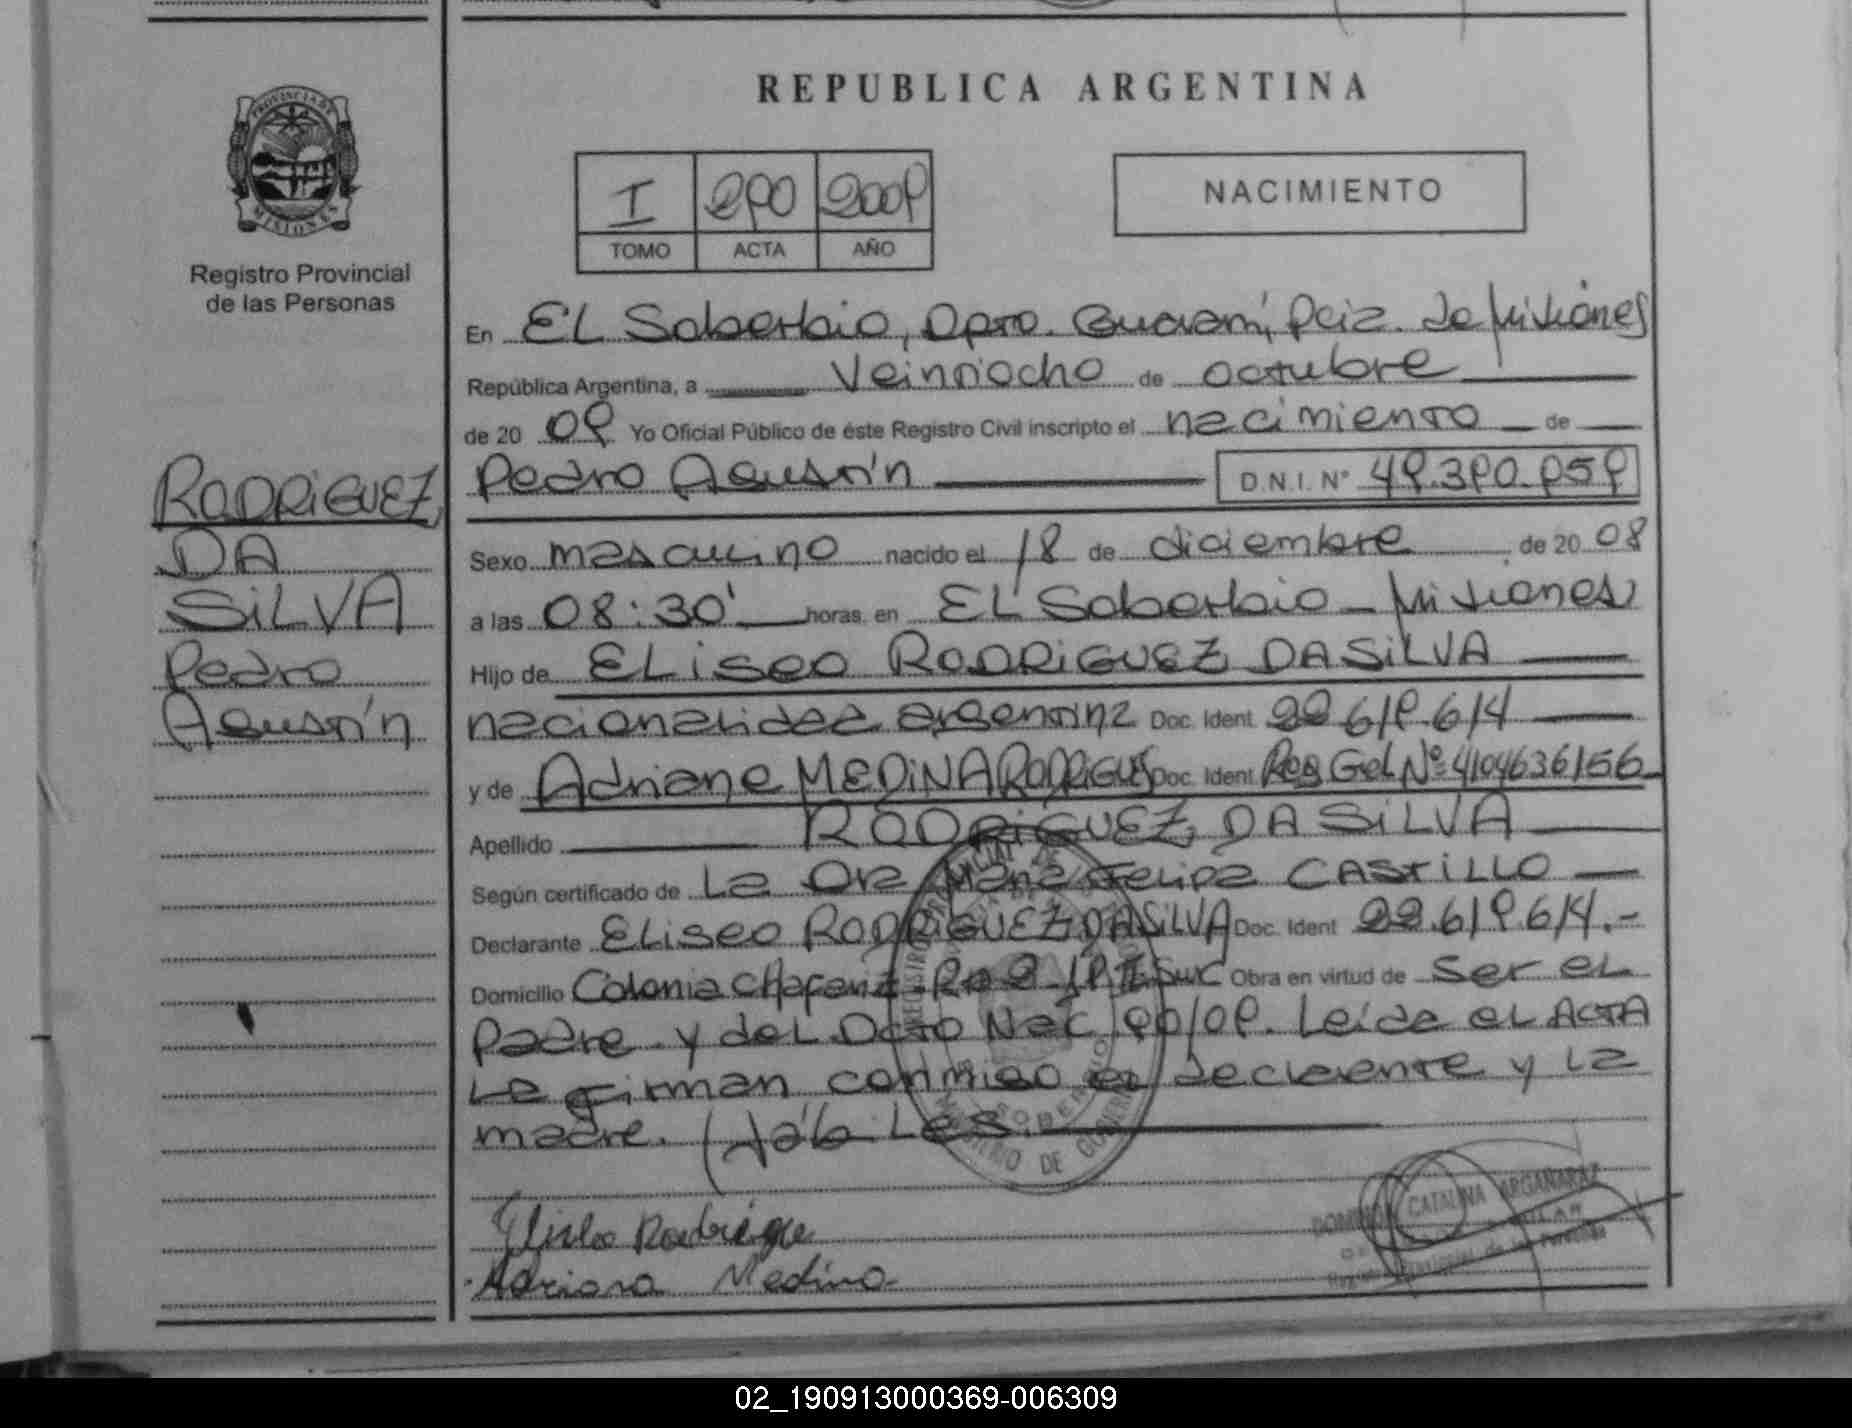 REPUBLICA ARGENTINA
PROVINCIA DE
MISIONES
Registro Provincial
de las Personas
I 290 2009
TOMO ACTA AÑO
NACIMIENTO
En EL Soberbio, Dpto. Guaraní, Pcia. de Misiones
República Argentina, a Veintiocho de octubre
de 20 09 Yo Oficial Público de éste Registro Civil inscripto el nacimiento de
Pedro Agustín D.N.I. N° 49.390.959
RODRIGUEZ
DA
SILVA
Pedro
Agustín
Sexo masculino nacido el 18 de diciembre de 20 08
a las 08:30' horas, en EL Soberbio - Misiones
Hijo de ELiseo RODRIGUEZ DA SILVA
nacionalidad argentina Doc. Ident. 22.619.614
y de Adriane MEDINA RODRIGUES Doc. Ident. Reg Gel Nº 4104636156
Apellido RODRIGUEZ DA SILVA
Según certificado de La Dra Maria Felipa CASTILLO
Declarante ELiseo RODRIGUEZ DA SILVA Doc. Ident 22.619.614.-
Domicilio Colonia Chafariz Obra en virtud de ser el
padre y del Dcto Nac 90/09. Leída el ACTA
La firman conmigo el declarante y la
madre.
Rodrigue
Adriana Medina
MINISTERIO DE GOBIERNO
CATALINA ARGAÑARAZ
02_190913000369-006309